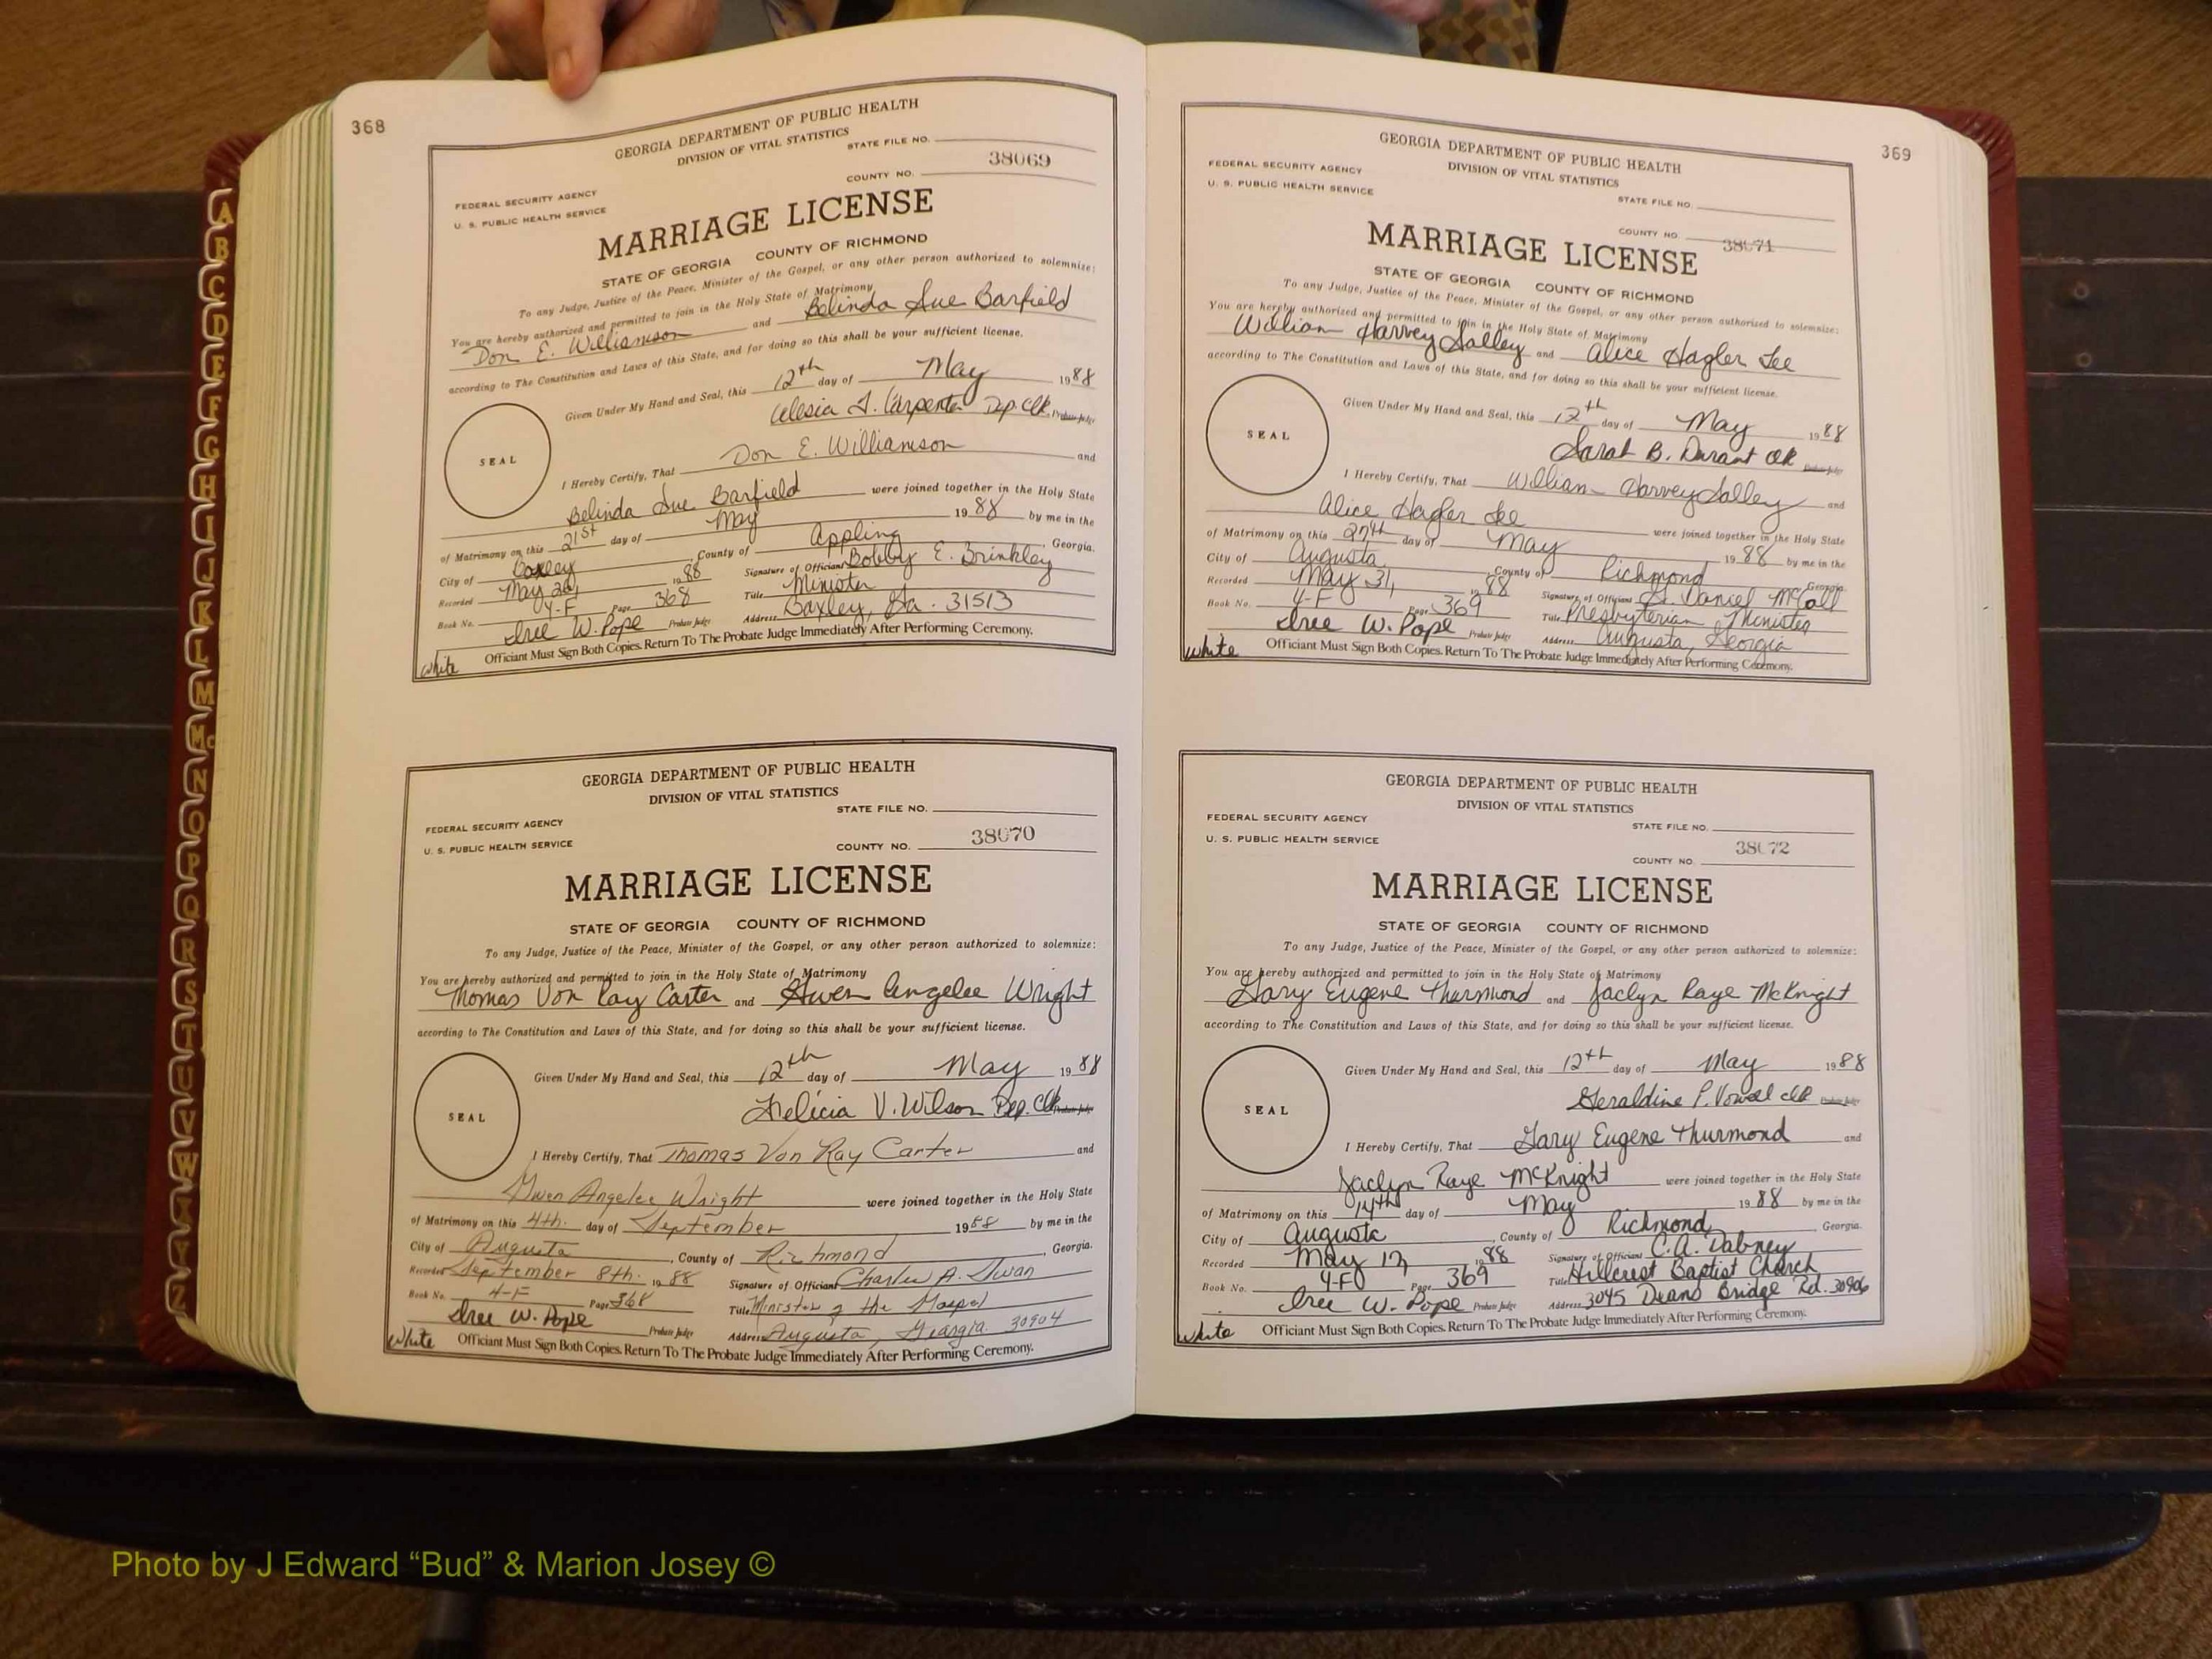 368
GEORGIA DEPARTMENT OF PUBLIC HEALTH
DIVISION OF VITAL STATISTICS
STATE FILE NO.
38069
COUNTY NO.
FEDERAL SECURITY AGENCY
U. S. PUBLIC HEALTH SERVICE
MARRIAGE LICENSE
STATE OF GEORGIA COUNTY OF RICHMOND
To any Judge, Justice of the Peace, Minister of the Gospel, or any other person authorized to solemnize:
You are hereby authorized and permitted to join in the Holy State of Matrimony
Don E. Williamson and Belinda Sue Barfield
according to The Constitution and Laws of this State, and for doing so this shall be your sufficient license.
Given Under My Hand and Seal, this 12th day of May 1988
Celesia J. Carpenter Dep. Clk. Probate Judge
SEAL
I Hereby Certify, That Don E. Williamson and
Belinda Sue Barfield were joined together in the Holy State
of Matrimony on this 21st day of May 1988 by me in the
City of Baxley County of Appling, Georgia.
Recorded May 26, 1988 Signature of Officiant Bobby E. Brinkley
Book No. 4-F Page 368 Title Minister
Isree W. Pope Probate Judge Address Baxley, Ga. 31513
White Officiant Must Sign Both Copies. Return To The Probate Judge Immediately After Performing Ceremony.
GEORGIA DEPARTMENT OF PUBLIC HEALTH
DIVISION OF VITAL STATISTICS
STATE FILE NO.
FEDERAL SECURITY AGENCY
38070
U. S. PUBLIC HEALTH SERVICE COUNTY NO.
MARRIAGE LICENSE
STATE OF GEORGIA COUNTY OF RICHMOND
To any Judge, Justice of the Peace, Minister of the Gospel, or any other person authorized to solemnize:
You are hereby authorized and permitted to join in the Holy State of Matrimony
Thomas Von Ray Carter and Gwen Angelee Wright
according to The Constitution and Laws of this State, and for doing so this shall be your sufficient license.
Given Under My Hand and Seal, this 12th day of May 1988
Felicia V. Wilson Dep. Clk. Probate Judge
SEAL
I Hereby Certify, That Thomas Von Ray Carter and
Gwen Angelee Wright were joined together in the Holy State
of Matrimony on this 4th. day of September 1988 by me in the
City of Augusta, County of Richmond, Georgia.
Recorded September 8th. 1988 Signature of Officiant Charles A. Swan
Book No. 4-F Page 368 Title Minister of the Gospel
Isree W. Pope Probate Judge Address Augusta, Georgia 30904
White Officiant Must Sign Both Copies. Return To The Probate Judge Immediately After Performing Ceremony.
369
GEORGIA DEPARTMENT OF PUBLIC HEALTH
DIVISION OF VITAL STATISTICS
FEDERAL SECURITY AGENCY
U. S. PUBLIC HEALTH SERVICE
STATE FILE NO.
COUNTY NO. 38071
MARRIAGE LICENSE
STATE OF GEORGIA COUNTY OF RICHMOND
To any Judge, Justice of the Peace, Minister of the Gospel, or any other person authorized to solemnize:
You are hereby authorized and permitted to join in the Holy State of Matrimony
William Harvey Salley and Alice Hagler Lee
according to The Constitution and Laws of this State, and for doing so this shall be your sufficient license.
Given Under My Hand and Seal, this 12th day of May 1988
Sarah B. Durant Clk Probate Judge
SEAL
I Hereby Certify, That William Harvey Salley and
Alice Hagler Lee were joined together in the Holy State
of Matrimony on this 27th day of May 1988 by me in the
City of Augusta, County of Richmond Georgia.
Recorded May 31, 1988 Signature of Officiant Daniel McCall
Book No. 4-F Page 369 Title Presbyterian Minister
Isree W. Pope Probate Judge Address Augusta, Georgia
White Officiant Must Sign Both Copies. Return To The Probate Judge Immediately After Performing Ceremony.
GEORGIA DEPARTMENT OF PUBLIC HEALTH
DIVISION OF VITAL STATISTICS
FEDERAL SECURITY AGENCY STATE FILE NO.
U. S. PUBLIC HEALTH SERVICE 38072
COUNTY NO.
MARRIAGE LICENSE
STATE OF GEORGIA COUNTY OF RICHMOND
To any Judge, Justice of the Peace, Minister of the Gospel, or any other person authorized to solemnize:
You are hereby authorized and permitted to join in the Holy State of Matrimony
Gary Eugene Thurmond and Jaclyn Raye McKnight
according to The Constitution and Laws of this State, and for doing so this shall be your sufficient license.
Given Under My Hand and Seal, this 12th day of May 1988
Geraldine P. Vowell Clk Probate Judge
SEAL
I Hereby Certify, That Gary Eugene Thurmond and
Jaclyn Raye McKnight were joined together in the Holy State
of Matrimony on this 14th day of May 1988 by me in the
City of Augusta, County of Richmond, Georgia.
Recorded May 1988 Signature of Officiant C.A. Dabney
Book No. 4-F Page 369 Title Hillcrest Baptist Church
Isree W. Pope Probate Judge Address 3045 Deans Bridge Rd. 30906
White Officiant Must Sign Both Copies. Return To The Probate Judge Immediately After Performing Ceremony.
A
B
C
D
E
F
G
H
I
J
K
L
M
Mc
N
O
P
Q
R
S
T
U
V
W
X
Y
Z
Photo by J Edward “Bud” & Marion Josey ©